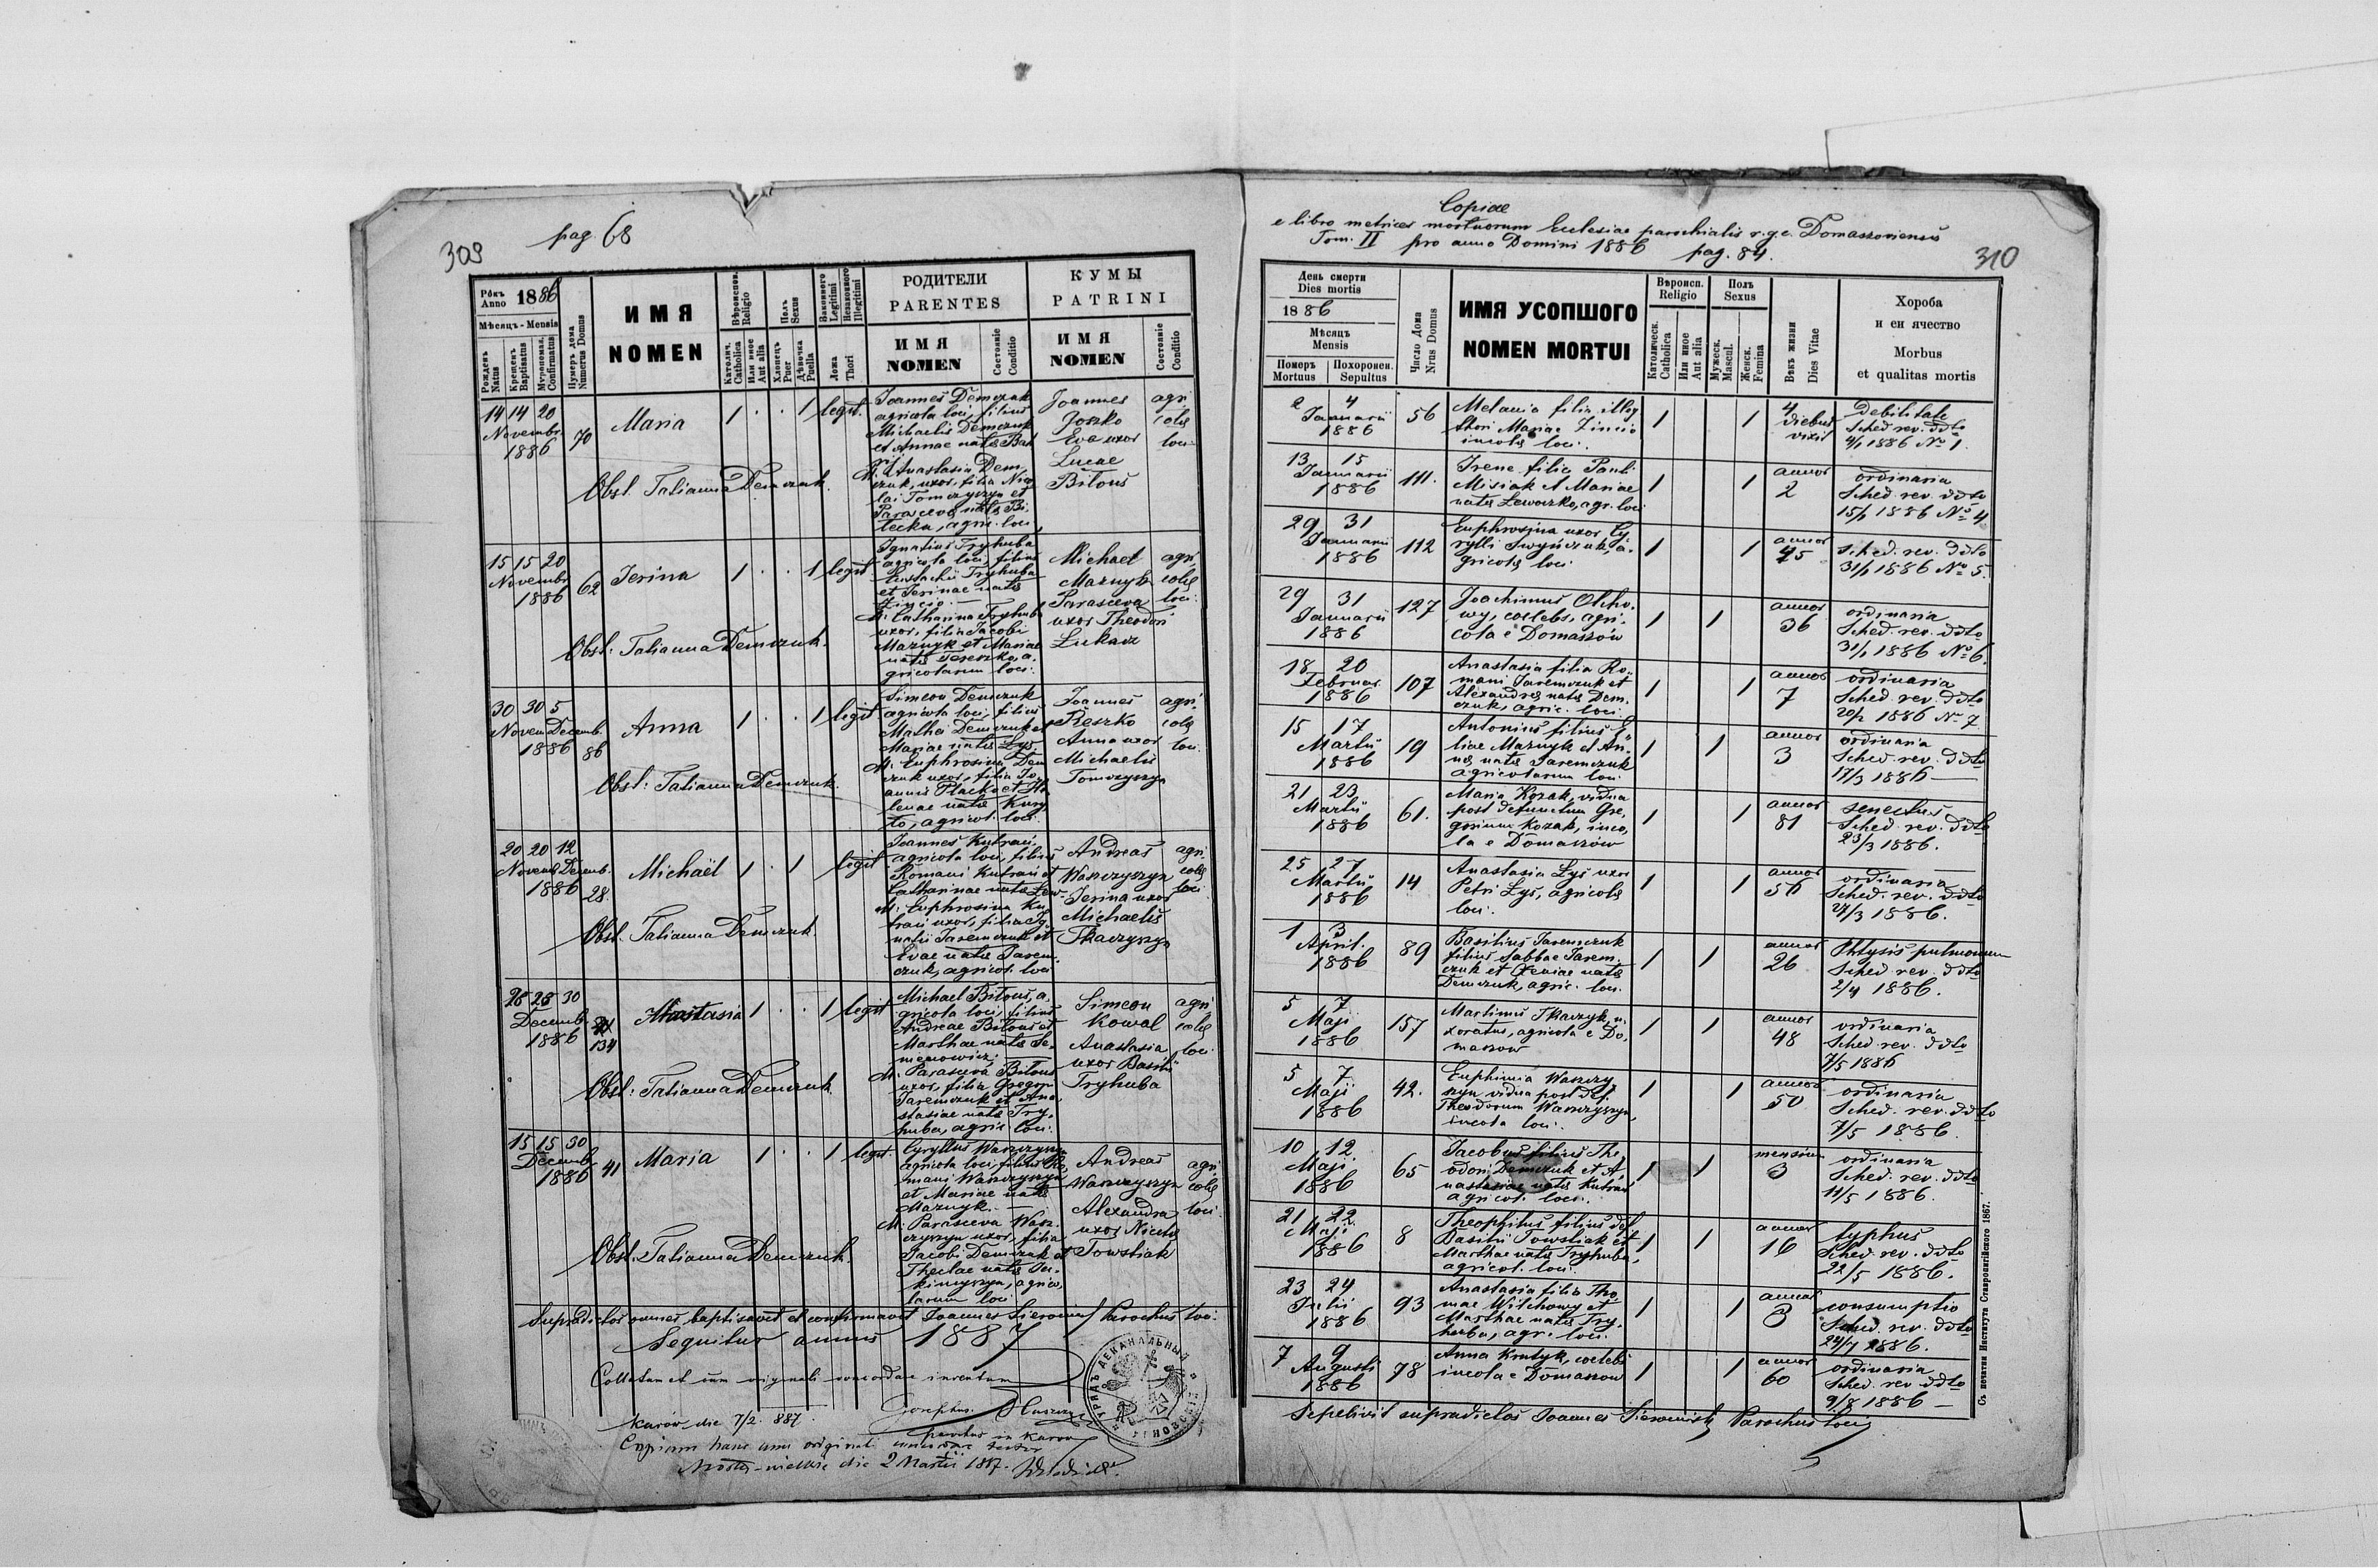 309
pag. 68
Рôкъ
Anno
1886
Мѣсяць - Mensis
Рожденъ
Natus
Крещенъ
Baptisatus
Мѵропомаз.
Confirmatus
Нумеръ дома
Numerus Domus
ИМЯ
NOMEN
Вѣроиспов.
Religio
Католич.
Catholica
Или иное
Aut alia
Полъ
Sexus
Хлопецъ
Puer
Дѣвочка
Puella
Законного
Legitimi
Незаконного
Illegitimi
Ложа
Thori
РОДИТЕЛИ
PARENTES
ИМЯ
NOMEN
Состояніе
Conditio
КУМЫ
PATRINI
ИМЯ
NOMEN
Состояніе
Conditio
14 14 20
Novembr.
1886
70
Maria
1 . . 1 legit.
Joannes Demczuk
agricola loci, filius
Michaelis Demczuk
et Annae natae
M. Anastasia Dem
czuk, uxor, filia Nico
lai Tomczyszyn et
Parascevae natae Bi
lecka, agric. loci
Joannes
Joszko
Eva uxor
Lucae
Bitous
agri
colae
loci
Obst. Tatianna Demczuk.
15 15 20
Novembr
1886
62
Jerina
1 . . 1 legit
Ignatius Tryhuba
agricola loci, filius
Eustachii Tryhuba
et Jerinae natae
M. Catharina Tryhuba
uxor, filia Jacobi
Mazuryk et Mariae
natae Tereszko, a.
gricolarum loci.
Michael
Mazuryk
Parasceva
uxor Theodori
Lukasz
agri
colae
loci
Obst: Tatianna Demczuk.
30 30 5
Novem Decemb.
1886
86
Anna
1 . . 1 legit
Simeon Demczuk
agricola loci, filius
Mathei Demczuk et
Mariae natae Lys.
M. Euphrosina Dem
czuk uxor, filia Jo
annis Placko et He
lenae natae
to, agricol. loci.
Joannes
Reszko
Anna uxor
Michaelis
Tomczyszyn
agri
colae
loci
Obst: Tatianna Demczuk.
20 20 12
Novemb Decemb.
1886
28.
Michaël
1 . 1 legit
Joannes Kutrań,
agricola loci, filius
Romani Kutrań et
Catharinae natae Lew
M. Euphrosina Ku
trań uxor, filia Ig
natii Jaremczuk et
Evae natae Jarem
czuk, agricol. loci
Andreas
Wawczyszyn
Jerina uxor
Michaelis
Tkaczyszyn
agri
colae
loci
Obst. Tatianna Demczuk.
28 28 30
Decemb
1886
134
Anastasia
1 . . 1 legit
Michael Bitous, a,
gricola loci, filius
Andreae Bitous et
Marthae natae Se,
menowicz,
M. Parasceva Bitous
uxor, filia Gregorii
Jaremczuk et Ana,
stasiae natae Try,
huba, agric. loci.
Simeon
Kowal
Anastasia
uxor Basilii
Tryhuba
agri
colae
loci
Obst: Tatianna Demczuk
15 15 30
Decemb
1886
41
Maria
1 . . 1 legit.
Cyryllus Wawczyszyn
agricola loci, filius Ro
mani Wawczyszyn
et Mariae natae
Mazuryk. —
M. Parasceva Waw.
czyszyn uxor, filia
Jacobi Demczuk et
Theclae natae
agrico,
larum loci
Andreas
Wawczyszyn
Alexandra
uxor Nicolai
Towstiak
agri
colae
loci
Obst. Tatianna Demczuk.
Supradictos omnes baptisavit et confirmavit Joannes Parochus loci.
Sequitur annus 1887
Collatum et cum originali concordare inventum
Karów die 7/2. 887.
Josephus
parochus in Karow
Copiam hanc cum originali concordare testor
Mosty-wielkie die 2 Martii 1887.
310
Copiae
e libro metrices mortuorum Ecclesiae parochialis r. g. c. Domaszoviensis
Tom. II pro anno Domini 1886 pag. 84.
День смерти
Dies mortis
1886
Мѣсяць
Mensis
Померъ
Mortuus
Похоронен.
Sepultus
Число Дома
Nrus Domus
ИМЯ УСОПШОГО
NOMEN MORTUI
Вѣроисп.
Religio
Католическ.
Catholica
Или иное
Aut alia
Полъ
Sexus
Мужеск.
Mascul.
Женск.
Femina
Вѣкъ жизни
Dies Vitae
Хороба
и еи ячество
Morbus
et qualitas mortis
2 4
Januarii
1886
56
Melania filia illeg
thori Mariae Zincio
incolae loci.
1 1
4
diebus
vixit
Debilitate
Sched. rev. ddto
4/1 1886 No 1.
13 15
Januarii
1886
111.
Irene filia Pauli
Misiak et Mariae
natae Leworzko, agr. loci
1 1
annos
2
ordinaria
Sched. rev. ddto
15/1 1886 No 4
29 31
Januarii
1886
112
Euphrosina uxor Cy
rylli Swyńczuk, a.
gricolae loci
1 1
annos
45
Sched. rev. ddto
31/1 1886 No 5.
29 31
Januarii
1886
127
Joachimus Olcho.
wy, coelebs, agri,
cola e Domaszów
1 1
annos
36
ordinaria
Sched. rev. ddto
31/1 1886 No 6.
18 20
Februar
1886
107
Anastasia filia Ro
mani Jaremczuk et
Alexandrae natae Dem.
czuk, agric. loci.
1 1
annos
7
ordinaria
Sched. rev. ddto
20/2 1886 No 7
15 17
Martii
1886
19
Antonius filius E
liae Mazuryk et An.
nae natae Jaremczuk
agricolarum loci
1 1
annos
3
ordinaria
Sched. rev. ddto
17/3 1886 —
21 23
Martii
1886
61.
Maria Kozak, vidua
post defunctum Gre,
gorium Kozak, inco,
la e Domaszów
1 1
annos
81
senectus
Sched. rev. ddto
23/3 1886.
25 27
Martii
1886
14
Anastasia Lys uxor
Petri Lys, agricolae
loci.
1 1
annos
56
ordinaria
Sched. rev. ddto
27/3 1886.
1 3
April.
1886
89
Basilius Jaremczuk
filius Sabbae Jarem.
czuk et Xeniae natae
Demczuk, agric. loci.
1 1
annos
26
Phtysis pulmonum
Sched. rev. ddto
2/4 1886.
5 7
Maji
1886
157
Martinus Tkaczyk, u.
xoratus, agricola e Do,
maszow
1 1
annos
48
ordinaria
Sched. rev. ddto
7/5 1886
5 7
Maji
1886
42.
Euphimia Wawczy
szyn vidua post def.
Theodorum Wawczyszyn,
incola loci.
1 1
annos
50
ordinaria
Sched. rev. ddto
7/5 1886.
10 12
Maji
1886
65
Jacobus filius The,
odori Demczuk et A,
nastasiae natae Kutrań
agricol. loci.
1 1
mensium
3
ordinaria
Sched. rev. ddto
11/5 1886.
21 22
Maji
1886
8
Theophilus filius def
Basilii Towstiak et
Marthae natae Tryhuba,
agricol. loci.
1 1
annos
16
typhus
Sched. rev. ddto
22/5 1886.
23 24
Julii
1886
93
Anastasia filia Tho,
mae Witchowy et
Marthae natae Try,
huba, agr. loci.
1 1
annos
3
consumptio
Sched. rev. ddto
24/7 1886.
7 9
Augusti
1886
78
Anna Krutyk, coelebs
incola e Domaszow
1 1
annos
60
ordinaria
Sched. rev ddto
9/8 1886 —
Sepelivit supradictos Joannes Parochus loci
Съ печатни Института Ставропигійского 1867.